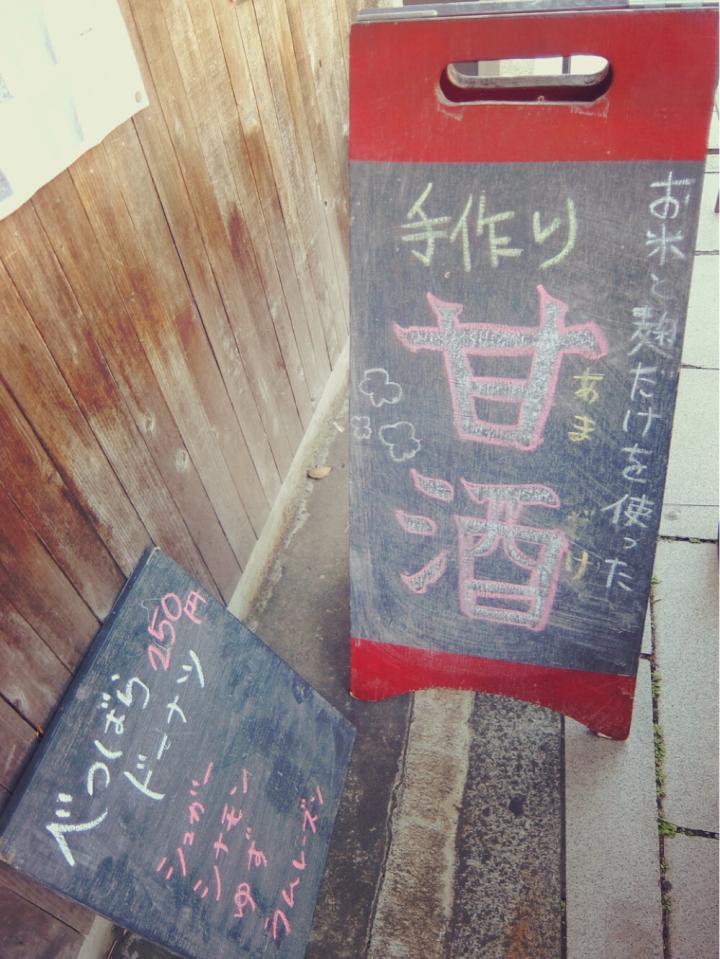 お米と麹だけを使った
手作り
甘酒
あまざけ
べつばら
ドーナツ
250円
シュガー
シナモン
ゆず
らむレーズン